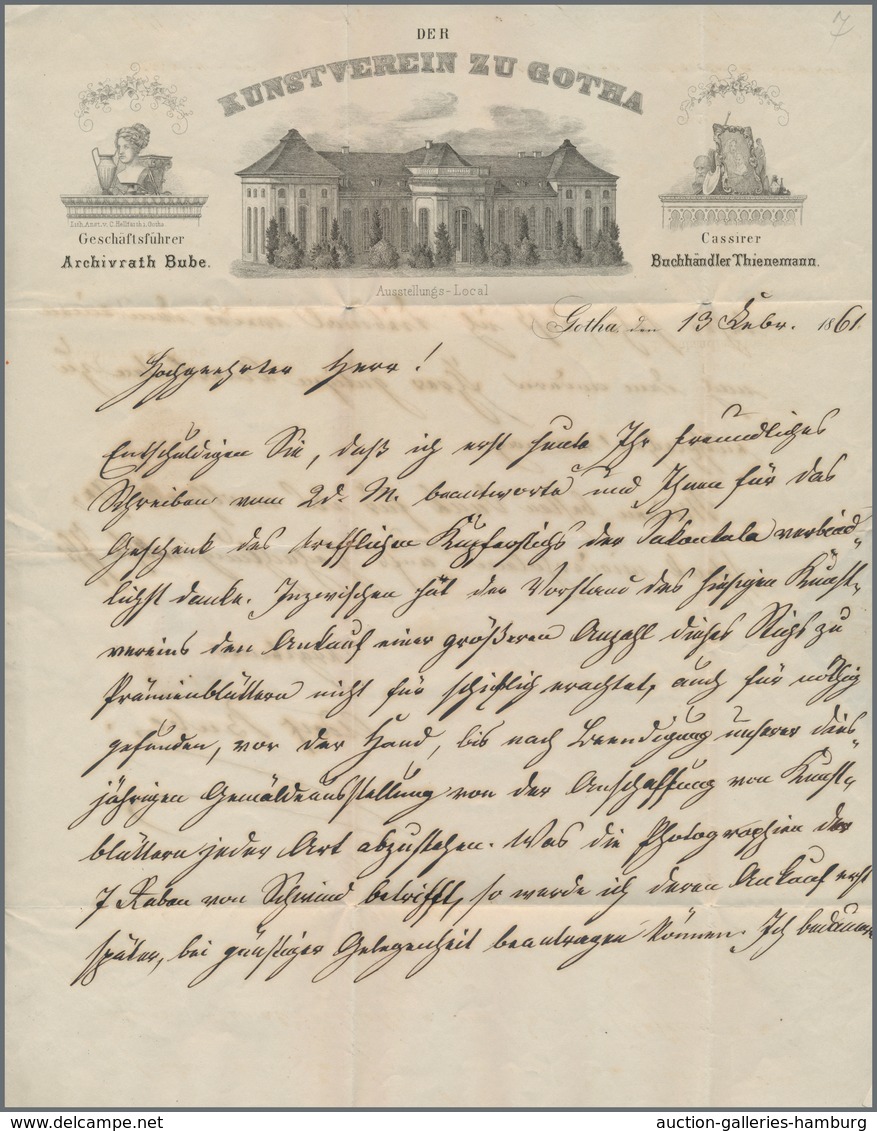 7
DER
KUNSTVEREIN ZU GOTHA
Lith. Anst. v. C. Hellfarth i. Gotha
Geschäftsführer
Archivrath Bube.
Cassirer
Buchhändler Thienemann.
Ausstellungs-Local
Gotha, den 13 Febr. 1861.
Hochgeehrter Herr!
Entschuldigen Sie, daß ich erst heute Ihr freundliches
Schreiben vom 2 d. M. beantworte und Ihnen für das
Geschenk des trefflichen Kupferstichs der Sakontala verbind-
lichst danke. Inzwischen hat der Vorstand des hiesigen Kunst-
vereins den Ankauf einer größeren Anzahl dieses Stichs zu
Prämienblättern nicht für schicklich erachtet, auch für nöthig
gefunden, vor der Hand, bis nach Beendigung unserer dies-
jährigen Gemäldeausstellung von der Anschaffung von Kunst-
blättern jeder Art abzustehen. Was die Photographien der
7 Raben von Schwind betrifft, so werde ich deren Ankauf erst
später, bei günstiger Gelegenheit beantragen können. Ich bedaure
auction-galleries-hamburg